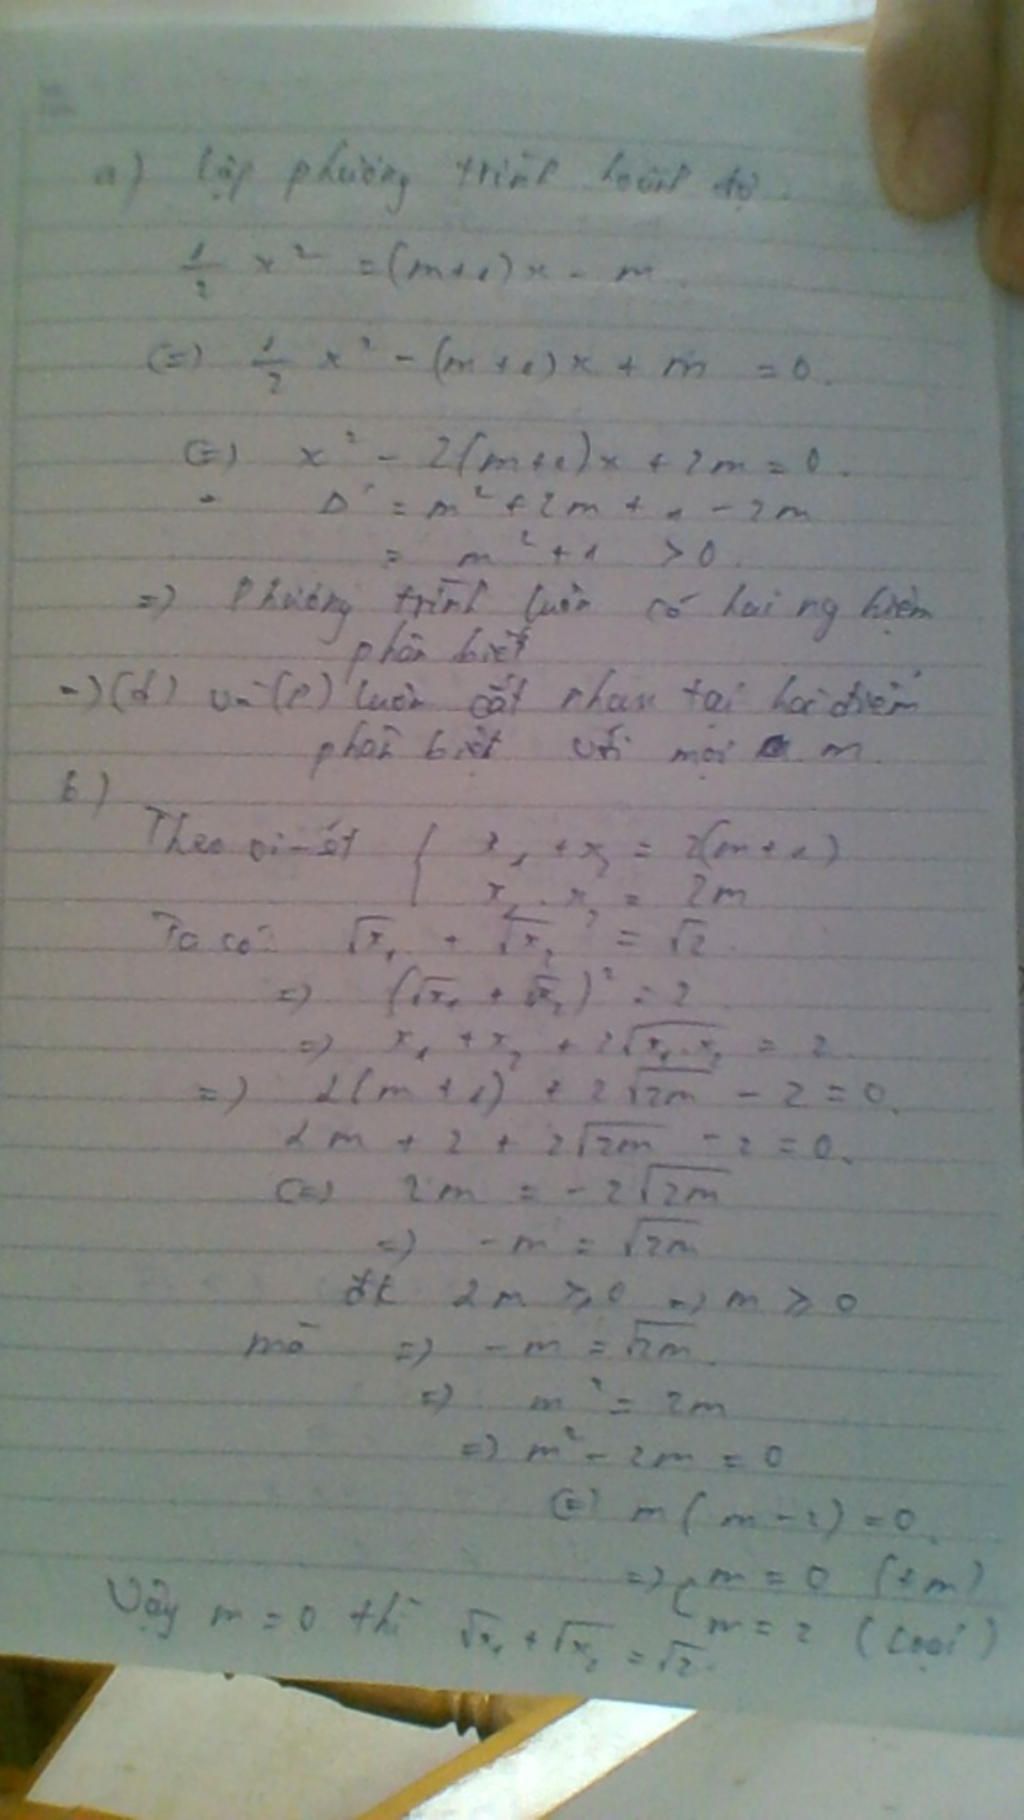 a) Lập phương trình hoành độ.
1/2 x² = (m+1)x - m
(=) 1/2 x² - (m+1)x + m = 0.
(=) x² - 2(m+1)x + 2m = 0.
Δ' = m² + 2m + 1 - 2m
= m² + 1 > 0
=) Phương trình luôn có hai nghiệm
phân biệt
=) (d) và (P) luôn cắt nhau tại hai điểm
phân biệt với mọi m.
b)
Theo vi-ét { x₁ + x₂ = 2(m+1)
x₁ . x₂ = 2m
Ta có: √x₁ + √x₂ = √2.
=) (√x₁ + √x₂)² = 2
=) x₁ + x₂ + 2√x₁.x₂ = 2
=) 2(m+1) + 2√2m - 2 = 0.
2m + 2 + 2√2m - 2 = 0.
(=) 2m = -2√2m
=) -m = √2m
đk 2m ≥ 0 =) m ≥ 0
mà =) -m = √2m.
=) m² = 2m
=) m² - 2m = 0
(=) m(m-2) = 0.
=) [ m = 0 (tm)
m = 2 (Loại)
Vậy m = 0 thì √x₁ + √x₂ = √2.